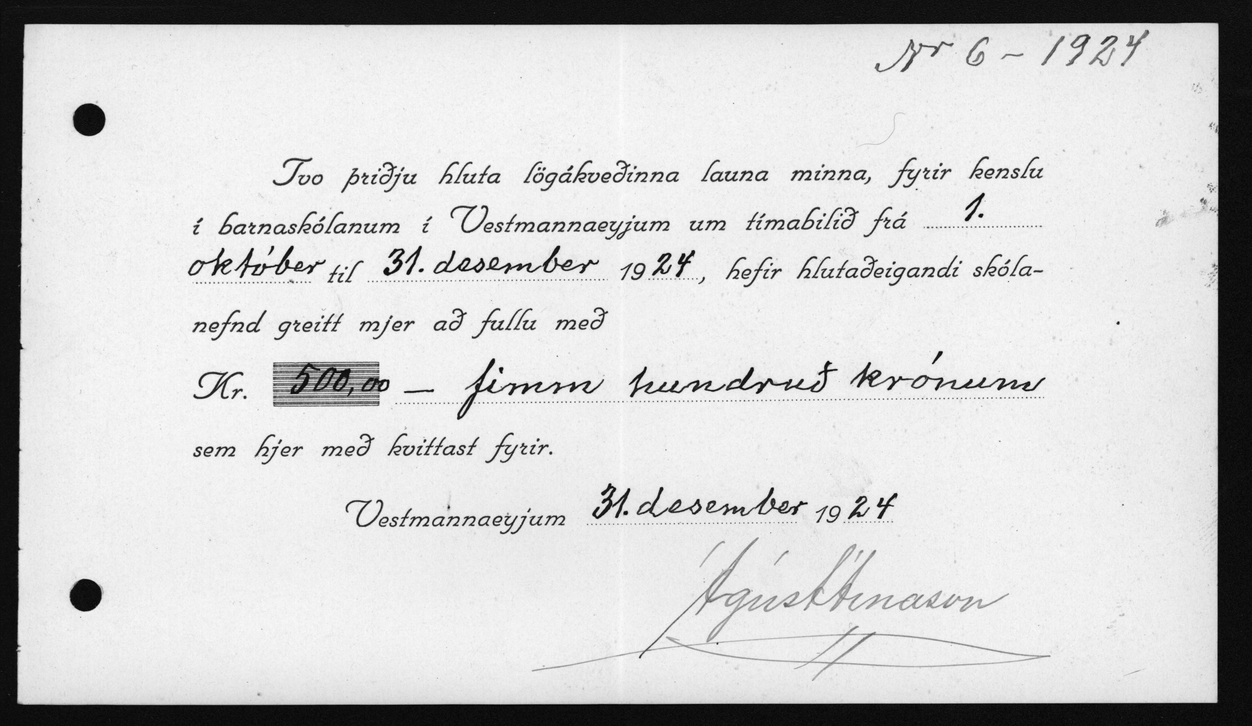 Nr 6 - 1924
Tvo þriðju hluta lögákveðinna launa minna, fyrir kenslu
í barnaskólanum í Vestmannaeyjum um tímabilið frá 1.
október til 31. desember 1924, hefir hlutaðeigandi skóla-
nefnd greitt mjer að fullu með
Kr. 500,00 — fimm hundruð krónum
sem hjer með kvittast fyrir.
Vestmannaeyjum 31. desember 1924
Ágúst Árnason